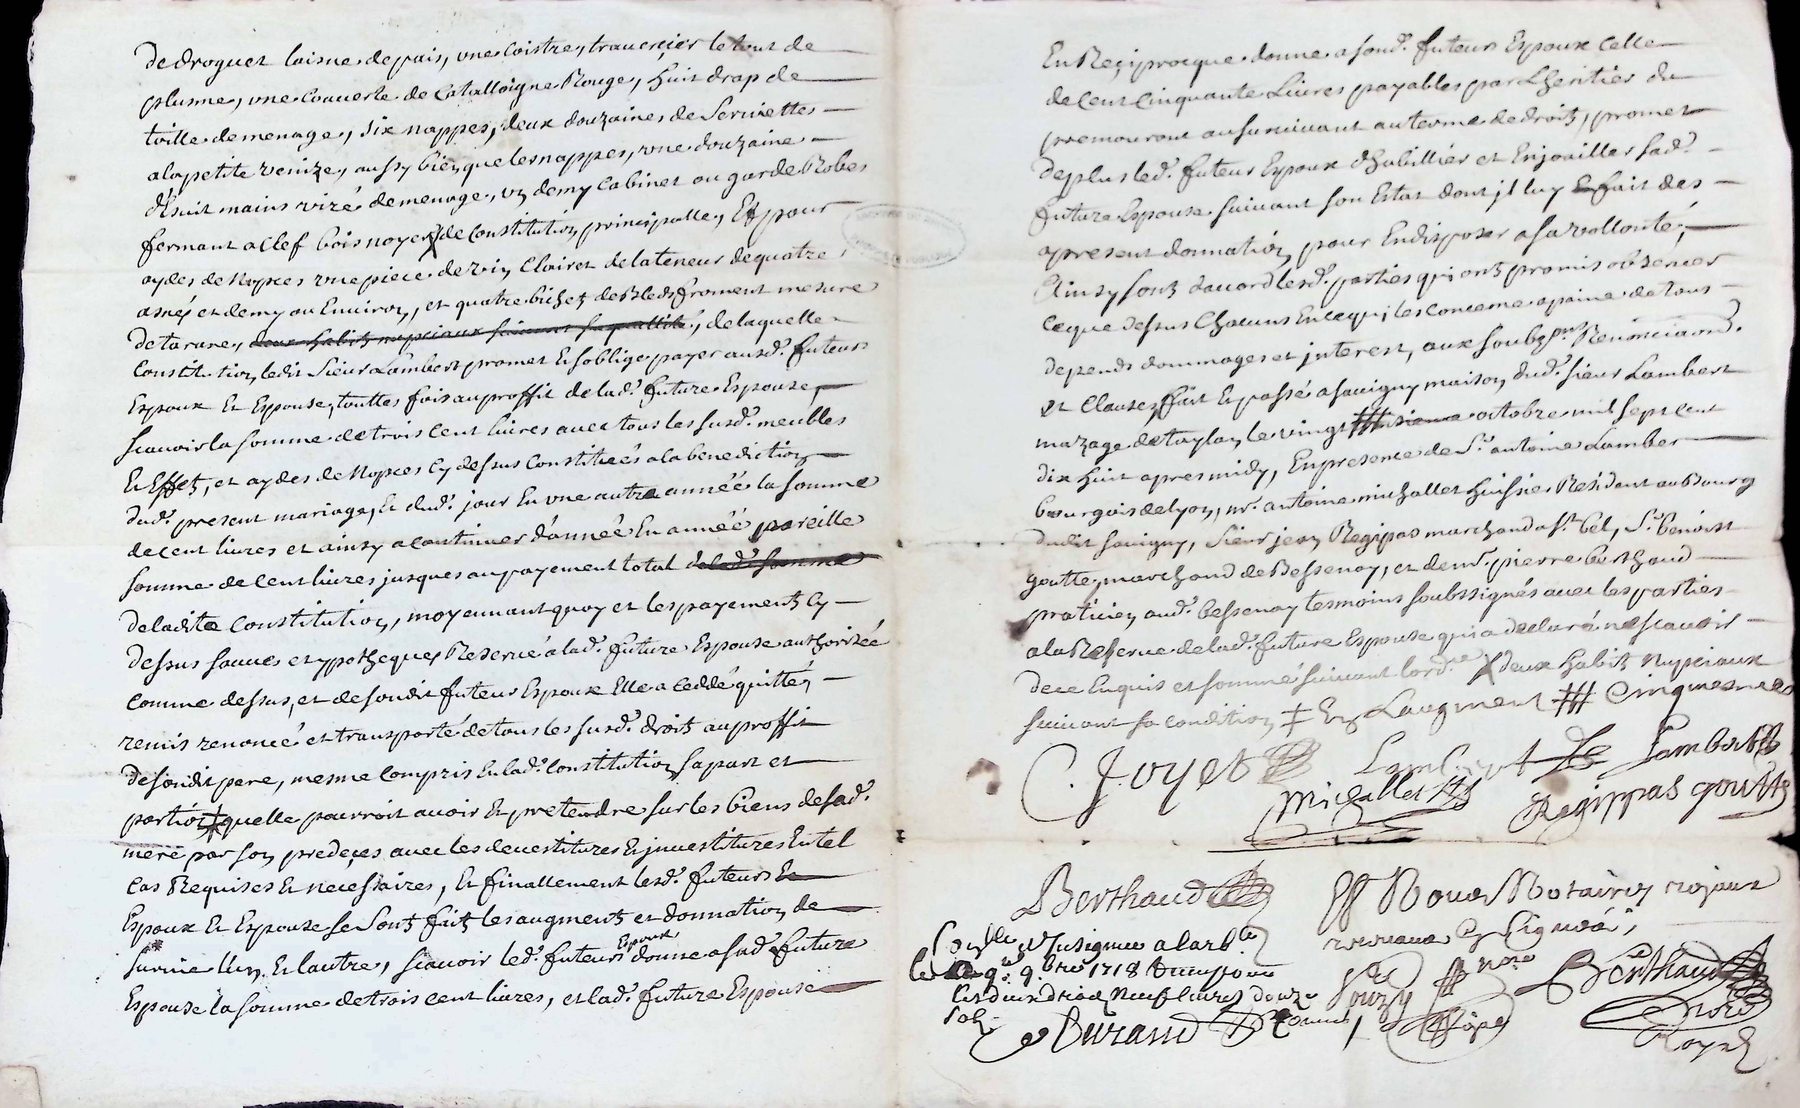 de droguet laisne de pais, une coistre, traversier le tout de
plusme, une couverte de Catalloigne Rouge, huit drap de
toille de menage, six nappes, deux douzaines de Serviettes
a la petite venize, aussy bien que les nappes, une douzaine
d'Esuit mains vizé de menage, un demy Cabinet ou garde Robes
fermant a Clef bois noyer de Constitution principalle, Et pour
aydes de Nopces une piece de vin Clairet de la teneur de quatre
asnés et demy ou Environ, et quatre bichetz de Bled froment mesure
de tarare, deux habitz nupciaux suivant sa quallité, de laquelle
Constitution ledit Sieur Lambert promet Et s'oblige payer ausd. futeurs
Espoux Et Espouse, touttes fois au proffit de lad. future Espouse,
scavoir la somme de trois Cent livres avec tous les susd. meubles
Et Effetz, et aydes de Nopces cy dessus Constitueés a la benediction
dud. present mariage, Et dud. jour En une autre anneé la somme
de cent livres et ainsy a continuer d'anneé En anneé pareille
somme de Cent livres jusques au payement total de lad. somme
de ladite Constitution, moyennant quoy et les payementz cy
dessus sauves et ypotheques Reservé a lad. future Espouse authoriseé
Comme dessus, et de sondit futeur Espoux Elle a Ceddé quitté
remis renoncé et transporté de tous les susd. droitz au proffit
de sondit pere, mesme Compris En lad. Constitution sa part et
portion quelle pourroit avoir Et pretendre sur les biens de sad.
mere par son predeçes avec les devestitures Et jnvestitures En tel
Cas Requises Et necessaires, Et finallement lesd. futeurs Et
Espoux Et Espouse se sont faitz les augmentz et donnation de
survie l'un Et lautre, scavoir led. futeurs Espoux donne a sad. future
Espouse la somme de trois cent livres, et lad. future Espouse
En Reçiprocque donne a sond. futeurs Espoux Celle
de Cent Cinquante Livres payables par L'heritier du
premourant au survivant au terme de droitz, promet
de plus led. futeurs Espoux d'habillier et Enjoailler sad.
future Espouse suivant son Estat dont jl luy Enfait des
apresent donnation pour En disposer a sa vollonté,
Ainsy sont d'accord lesd. parties qui ont promis observer
Ceque dessus Chacuns En ce qui les Concerne a paine de tous
depends dommages et jnterest, aux soubz.ons Renonciaond.
et Clauses, fait Et passé a savigny maison dud. sieur Lambert
mazage de taylan le vingt octobre mil sept cent
dix huit apres midy, En presence de Sr. antoine Lamber
bourgois de lyon, mr. antoine michallet huissier Residant au Bourg
dudit savigny, sieur jean Regipas marchand a St. bel, Sr. benoist
goutte, marchand de Bessenay, et de mr. pierre berthaud
praticien aud. bessenay tesmoins soubssignés avec les parties
a la Reserve de lad. future Espouse qui a declaré ne scavoir
de ce Enquis et sommé suivant lord.ce X deux habitz Nupciaux
suivant sa condition ‡ En Laugment ⧻ Cinquiesmes
C. Joyet Lambert Lambert
Michallet Regippas goutte
Berthaud Et Nous Notaires royaux
recevans Cy Signéé
Conllé Insignué a larb.le
le 9.bre 1718
Neuf livres douze
sols
Durand
Berthaud
nore
Royal